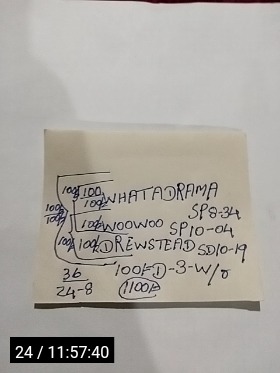 100/- 100 WHATADRAMA
100/- SP8-34
100/- 100/- WOOWOO SP10-04
100/- 100/- DREWSTEAD SD10-19
36 100/- D-3-W/
24-8 1100/-
24 / 11:57:40